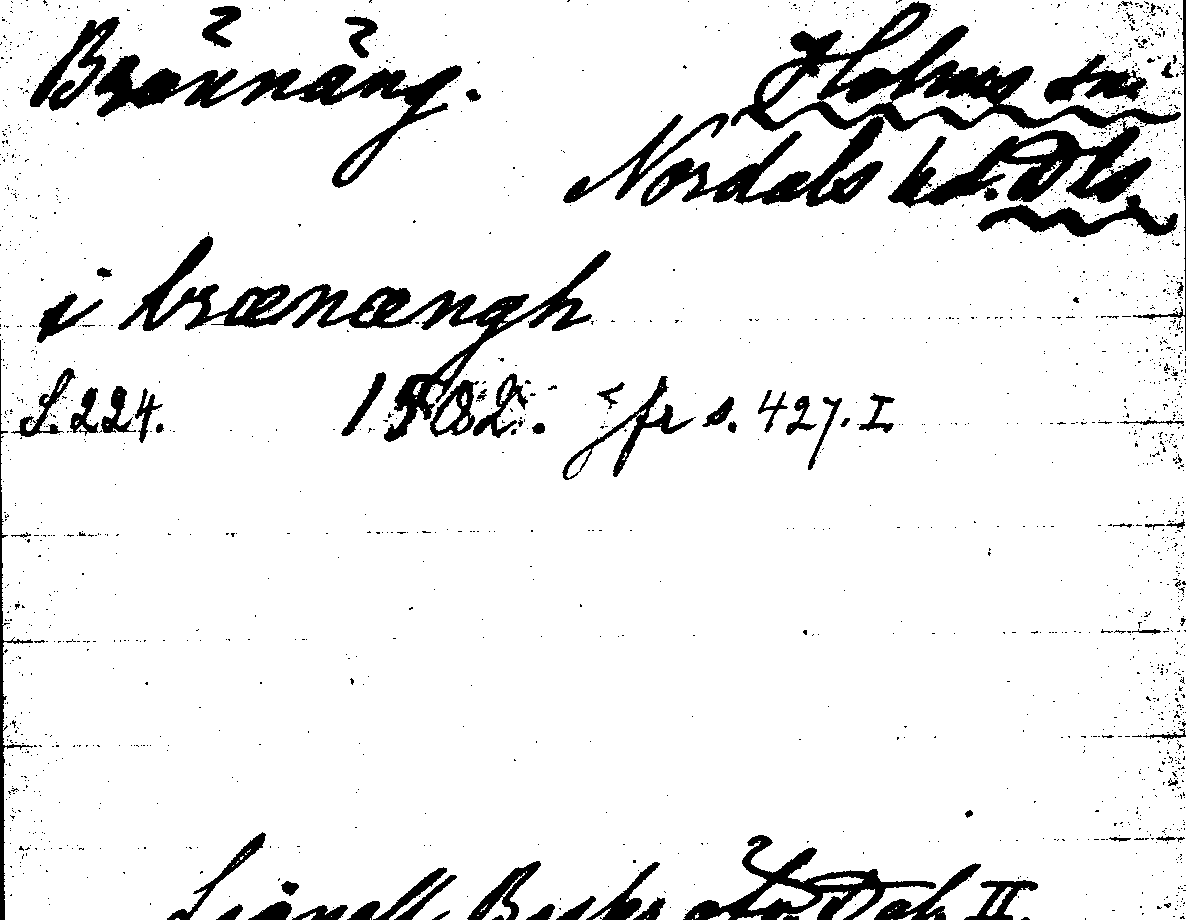 Brännäng. Holms sn.
Nordals hd. Dls.
i brænængh
S. 224. 1502. Jfr s. 427. I.
Lignell, Beskr. öfv. Dal. II